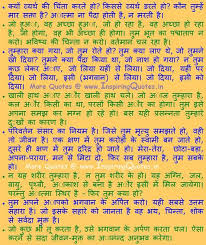 क्यों व्यर्थ की चिंता करते हो? किससे व्यर्थ डरते हो? कौन तुम्हें
मार सकता है? अात्मा ना पैदा होती है, न मरती है।
जो हुअा, वह अच्छा हुअा, जो हो रहा है, वह अच्छा हो रहा
है, जो होगा, वह भी अच्छा ही होगा। तुम भूत का पश्चाताप न
करो। भविष्य की चिन्ता न करो। वर्तमान चल रहा है।
तुम्हारा क्या गया, जो तुम रोते हो? तुम क्या लाए थे, जो तुमने
खो दिया? तुमने क्या पैदा किया था, जो नाश हो गया? न तुम
कुछ लेकर अाए, जो लिया यहीं से लिया। जो दिया, यहीं पर
दिया। जो लिया, इसी (भगवान) से लिया। जो दिया, इसी को
दिया।
खाली हाथ अाए और खाली हाथ चले। जो अाज तुम्हारा है,
कल और किसी का था, परसों किसी और का होगा। तुम इसे
अपना समझ कर मग्न हो रहे हो। बस यही प्रसन्नता तुम्हारे
दु:खों का कारण है।
परिवर्तन संसार का नियम है। जिसे तुम मृत्यु समझते हो, वही
तो जीवन है। एक क्षण में तुम करोड़ों के स्वामी बन जाते हो,
दूसरे ही क्षण में तुम दरिद्र हो जाते हो। मेरा-तेरा, छोटा-बड़ा,
अपना-पराया, मन से मिटा दो, फिर सब तुम्हारा है, तुम सबके
हो।
न यह शरीर तुम्हारा है, न तुम शरीर के हो। यह अग्नि, जल,
वायु, पृथ्वी, अाकाश से बना है और इसी में मिल जायेगा।
परन्तु अात्मा स्थिर है - फिर तुम क्या हो?
तुम अपने अापको भगवान के अर्पित करो। यही सबसे उत्तम
सहारा है। जो इसके सहारे को जानता है वह भय, चिन्ता, शोक
से सर्वदा मुक्त है।
जो कुछ भी तू करता है, उसे भगवान के अर्पण करता चल। ऐसा
करने से सदा जीवन-मुक्त का अानंद अनुभव करेगा।